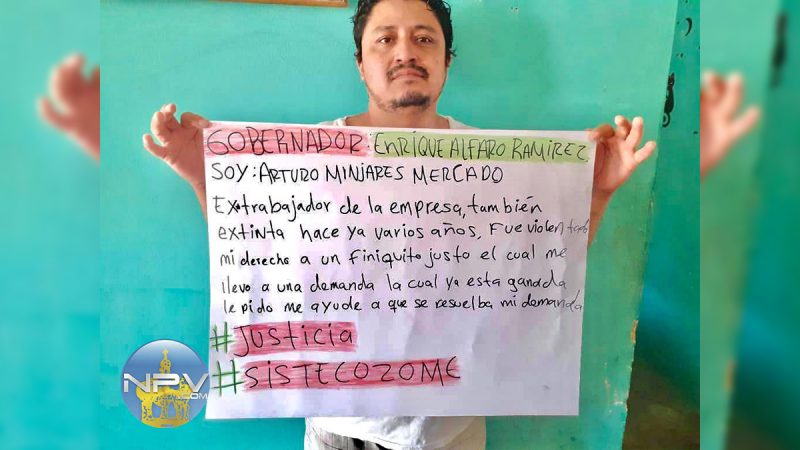 GOBERNADOR: ENRIQUE ALFARO RAMIREZ
SOY: ARTURO MINJARES MERCADO
Extrabajador de la empresa, también
extinta hace ya varios años, Fue violentado
mi derecho a un finiquito justo el cual me
llevo a una demanda la cual ya esta ganada
le pido me ayude a que se resuelba mi demanda
#JUSTICIA
#SISTECOZOME
NPV
.COM